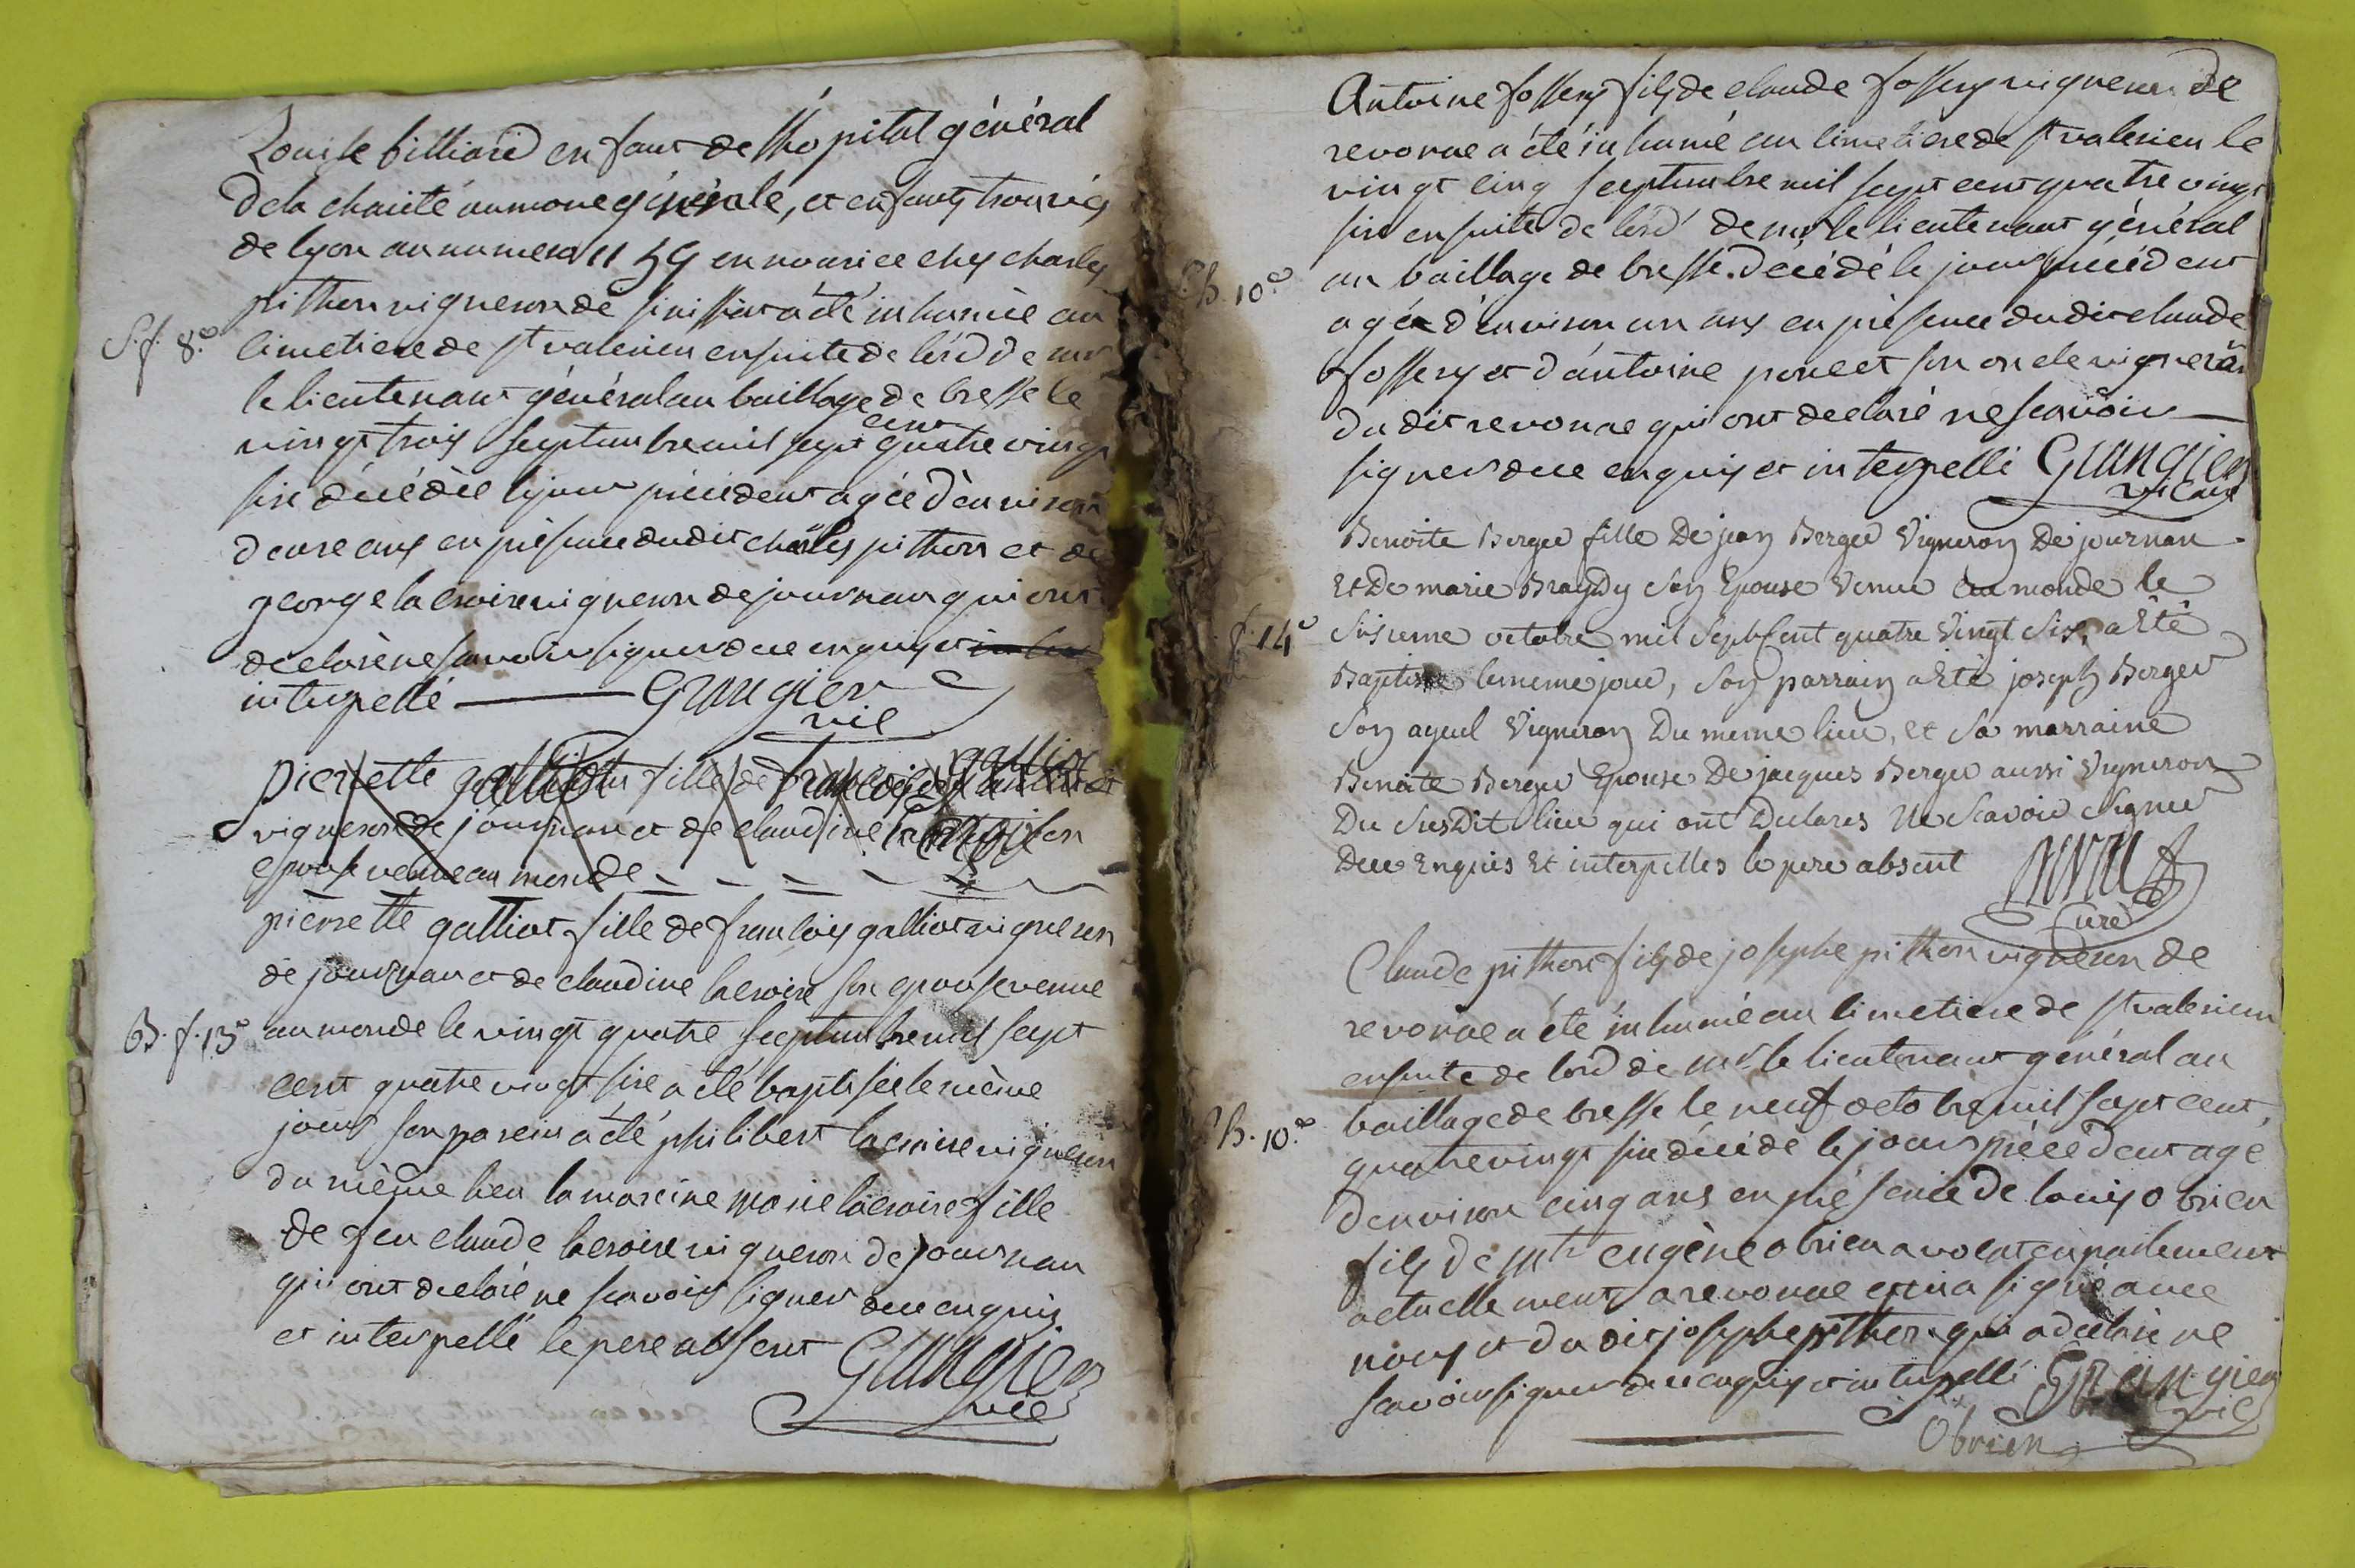 Louise billiard enfant de lhopital général
de la charité aumone générale, et enfants trouvés
de lyon au numero 1159 en nourice chez charles
pithon vigneron de  a été inhumée au
S. f. 8.e cimetiere de st valerien ensuite de l'ord de mr
le lieutenant général au baillage de bresse le
vingt trois septembre mil sept cent quatre vingt
six décédée le jour précédent agée d'environ
deux ans en présence dudit charles pithon et de
george lacroix vigneron de journan qui ont
déclaré ne savoir signer de ce enquis et
interpellé Grangier
vic
pierrette galliot fille de
vigneron de journan et de claudine
epouse venue au monde
pierrette galliot fille de francois galliot vigneron
de journan et de claudine lacroix son epouse venue
B. f. 13e au monde le vingt quatre septembre mil sept
cent quatre vingt six a été baptisée le même
jour son parein a été philibert lacroix vigneron
du même lieu la mareine marie lacroix fille
de feu claude lacroix vigneron de journan
qui ont declaré ne scavoir signer de ce enquis
et interpellé le pere absent Grangier
vic
Antoine fossery fils de claude fossery vigneron de
revonne a été inhumé au cimetiere de st valerien le
vingt cinq septembre mil sept cent quatre vingt
six ensuite de l'ord de mr le lieutenant général
S.h. 10.e au baillage de bresse. décédé le jour précédent
agée d'environ un ans en présence dudit claude
fossery et d'antoine poncet son oncle vigneron
du dit revonne qui ont declaré ne scavoir
signer de ce enquis et interpellé Grangier
vicaire
Benoite Berger fille De jean Berger Vigneron De journan
Et De marie  son Epouse Venue au monde le
f. 14e sisieme octobre mil Sept Cent quatre Vingt Six, a Eté
Baptisée le meme jour, son parrain a Eté joseph Berger
son ayeul Vigneron Du meme lieu, et sa marraine
Benoite Berger Epouse De jacques Berger aussi Vigneron
Du susDit lieu qui ont Declarés Ne Scavoir Signer
De ce Enquis Et interpellés le pere absent
Curé
Claude pithon fils de josephe pithon vigneron de
revonne a été inhumé au cimetiere de st valerien
ensuite de l'ord de mr le lieutenant général au
S.h. 10.e baillage de bresse le neuf octobre mil sept cent
quatre vingt six décédé le jour précédent agé
d'environ cinq ans en présence de louis obrien
fils de mtr eugène obrien avocat en parlement
actuellement a revonne qui a signé avec
nous et du dit josephe pithon qui a declaré ne
scavoir signer de ce enquis et interpellé Grangier
vic
Obrien